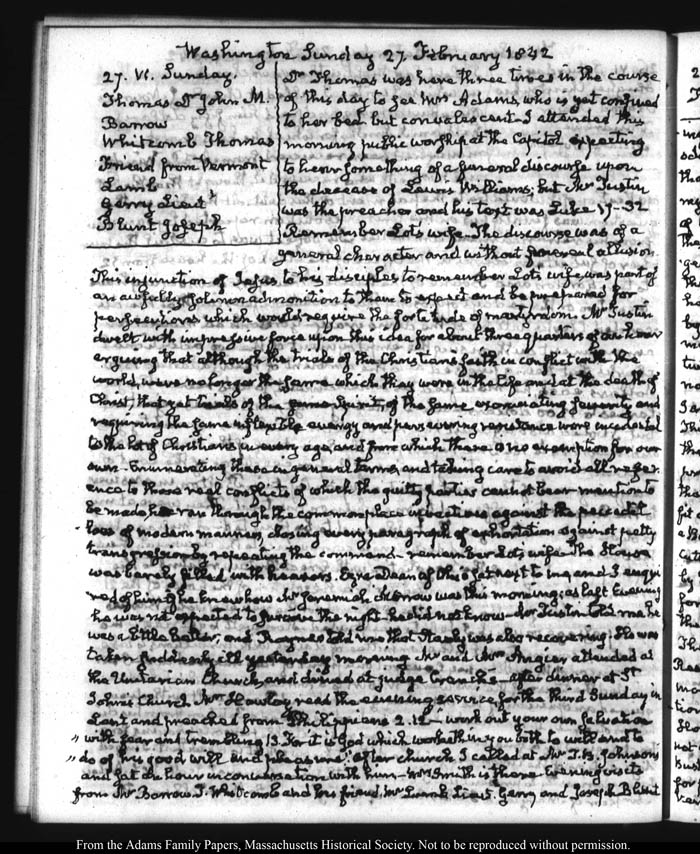 Washington Sunday 27 February 1842
27. VI. Sunday.
Thomas Dr John M.
Barrow
Whitcomb Thomas
Friend from Vermont
Lamb
Gerry Lieut
Blunt Joseph
Dr Thomas was here three times in the course
of this day to see Mrs Adams, who is yet confined
to her bed but convalescent. I attended this
morning public worship at the Capitol, expecting
to hear something of a funeral discourse upon
the decease of Lewis Williams; but Mr Tustin
was the preacher and his text was Luke 17-32
Remember Lots wife. The discourse was of a
general character and without funereal allusion.
This injunction of Jesus to his disciples to remember Lots wife was part of
an awfully solemn admonition to them to expect and be prepared for
persecutions which would require the fortitude of martyrdom. Mr Tustin
dwelt with impressive force upon this idea for about three quarters of an hour
arguing that although the trials of the Christians faith in conflict with the
world, were no longer the same which they were in the life and at the death of
Christ, that yet trials of the same Spirit, of the same severity and
requiring the same inflexible energy and persevering resistance were incidental
to the lot of Christians in every age, and from which there is no exemption for our
own. Enumerating these in general terms, and taking care to avoid all refer
ence to those real conflicts of which the guilty parties cannot bear mention to
be made, he ran through the commonplace invectives against the
laws of modern manners, closing every paragraph of exhortation against petty
transgression by repeating the command remember Lots wife. The House
was barely filled with hearers. Ezra Dean of Ohio sat next to me, and I enqui
red of him if he knew how Mr Jeremiah Morrow was this morning; as last Evening
he was not expected to survive the night. he did not know. Mr Tustin told me he
was a little better, and Haynes told me that Stanly was also recovering. He was
taken suddenly ill yesterday morning. Mr and Mrs Angier attended at
the Unitarian Church, and dined at judge Cranch's. after dinner at St
Johns Church Mr Hawley read the evening service for the third Sunday in
Lent and preached from Philippians 2.12 work out your own Salvation
" with fear and trembling 13. For it is God which worketh in you both to will and to
" do of his good will and pleasure." after church I called at Mr T.B. Johnson's
and sat an hour in conversation with him. Mrs Smith is there. Evening visits
from Mr Barrow, T. Whitcomb and his friend, Mr Lamb, Lieut. Gerry and Joseph Blunt
From the Adams Family Papers, Massachusetts Historical Society. Not to be reproduced without permission.